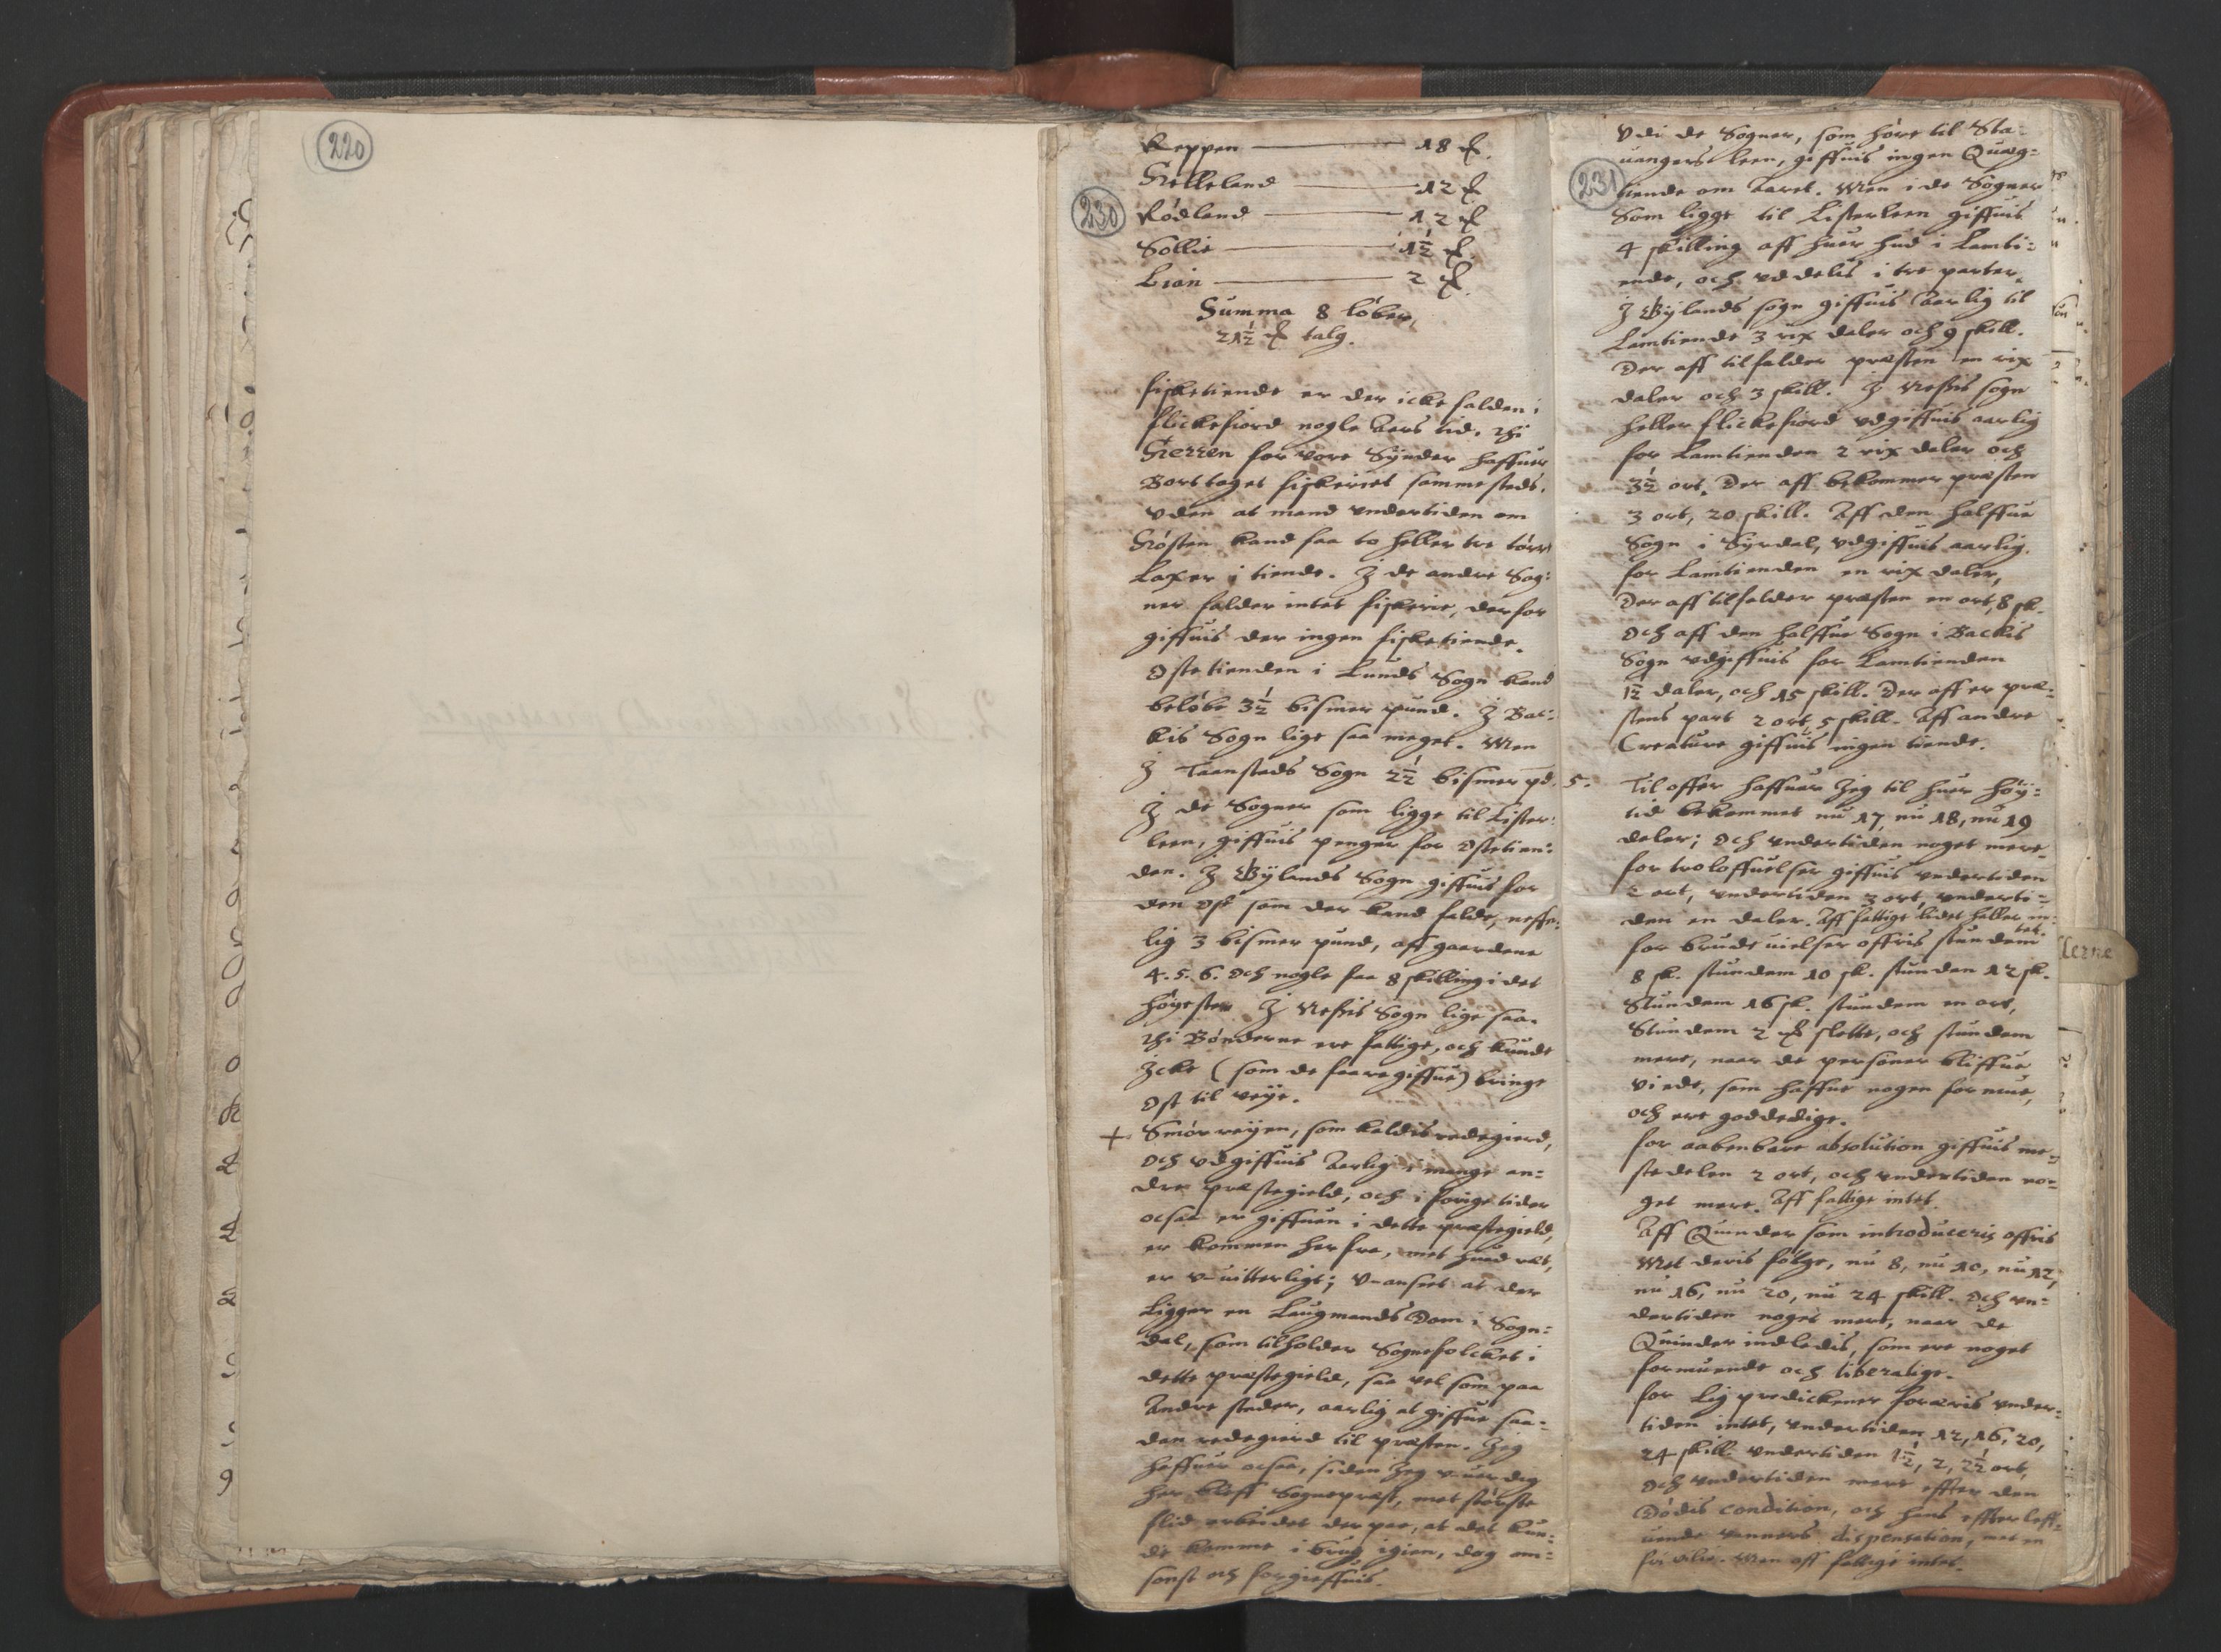 220
230
Keppen — 18 ℔.
Helleland — 12 ℔.
Rødland — 12 ℔.
Sollie — 1½ ℔.
Lian — 2 ℔.
Summa 8 løber,
21½ ℔ talg.
fisketiende er der icke falden i
flickefiord nogle Aars tid. thi
Herren for vore Synder haffuer
Borttaget fiskeriet sammesteds.
vden at mand vndertiden om
Høsten kand faa to heller tre tørr
Laxer i tiende. J de andre Sog=
ner falder intet fiskerie, derfor
giffuis der ingen fisketiende.
Ostetienden i Lunds Sogn kand
beløbe 3½ bismer pund. J Bac=
kis Sogn lige saa meget. Men
J Taanstads Sogn 2½ bismer pd.
J de Sogner som ligge til Lister=
leen, giffuis penger for Ostetien=
den. J Bylands Sogn giffuis for
den Ost som der kand falde, neffn=
lig 3 bismer pund, aff gaardene
4. 5. 6. Och nogle faa 8 skilling i det
høyeste. J Neßis Sogn lige saa.
thi Bønderne ere fattige, och kunde
Jcke (som de foregiffue) bringe
Ost til veye.
+ Smør reyen, som kaldis redegierd,
Och vdgiffuis Aarlig i mange an=
dre præstegield, och i forige tider
ocsaa er giffuen i dette præstegield,
er kommen her fra, met huad ret,
er v-uitterligt; v-anseet at der
Ligger en Laugmands Dom i Sogn=
dal, som tilholder Sognefolcket i
dette præstegield, saa vel som paa
Andre steder, aarlig at giffue saa=
dan redegierd til præsten. Jeg
haffuer ocsaa, siden Jeg v-uerdig
her bleff Sognepræst, met største
flid arbeidet der paa, at det kun=
de komme i brug igien, dog om=
sonst och forgieffuis.
231
Vdi de Sogner, som høre til Sta=
uangers leen, giffuis ingen Quæg=
tiende om Aaret. Men i de Sogner
Som ligge til Listerleen giffuis
4 skilling aff huer hud i Lamti=
ende, och vddelis i tre parter.
J Bylands sogn giffuis Aarlig til
Lamtiende 3 rix daler och 9 skill.
Der aff tilfalder præsten en rix
daler och 3 skill. J Neßis sogn
heller flickefiord vdgiffuis aarlig
for Lamtienden 2 rix daler och
3½ ort. Der aff bekommer præsten
3 ort, 20 skill. Aff den halffue
Sogn i Syrdal, vdgiffuis aarlig
for Lamtienden en rix daler,
Der aff tilfalder præsten en ort, 8 sk.
Och aff den halffue Sogn i Backis
Sogn vdgiffuis for Lamtienden
1½ daler, och 15 skill. Der aff er præ=
stens part 2 ort, 5 skill. Aff andre
Creature giffuis ingen tiende.
5. Til offer haffuer Jeg til huer høy=
tid bekommet nu 17, nu 18, nu 19
daler; Och vndertiden noget mere.
for troloffuelser giffuis vndertiden
2 ort, vndertiden 3 ort, vnderti=
den en daler. Aff fattige lidet heller in=
tet.
for brude uielser offris stundem
8 sk. stundem 10 sk. stunden 12 sk.
Stundem 16 sk. stundem en ort,
Stundem 2 ℔ slette, och stundem
mere, naar de personer bliffue
viede, som haffue nogen formue,
och ere goddedige.
for aabenbare absolution giffuis me=
stedelen 2 ort, och vndertiden no=
get mere. Aff fattige intet.
Aff Quinder som introduceris offris
Met deris følge, nu 8, nu 10, nu 12,
nu 16, nu 20, nu 24 skill. Och vn=
dertiden noget mere, naar de
Quinder indledis, som ere noget
formuende och liberalige.
for Lig predickener foræris vnder=
tiden intet, vndertiden 12, 16, 20,
24 skill. vndertiden 1½, 2, 2½ ort,
Och vndertiden mere effter den
Dødis condition, och hans effterleff=
uende venners dispensation, met en
fri vilie. Men aff fattige intet.